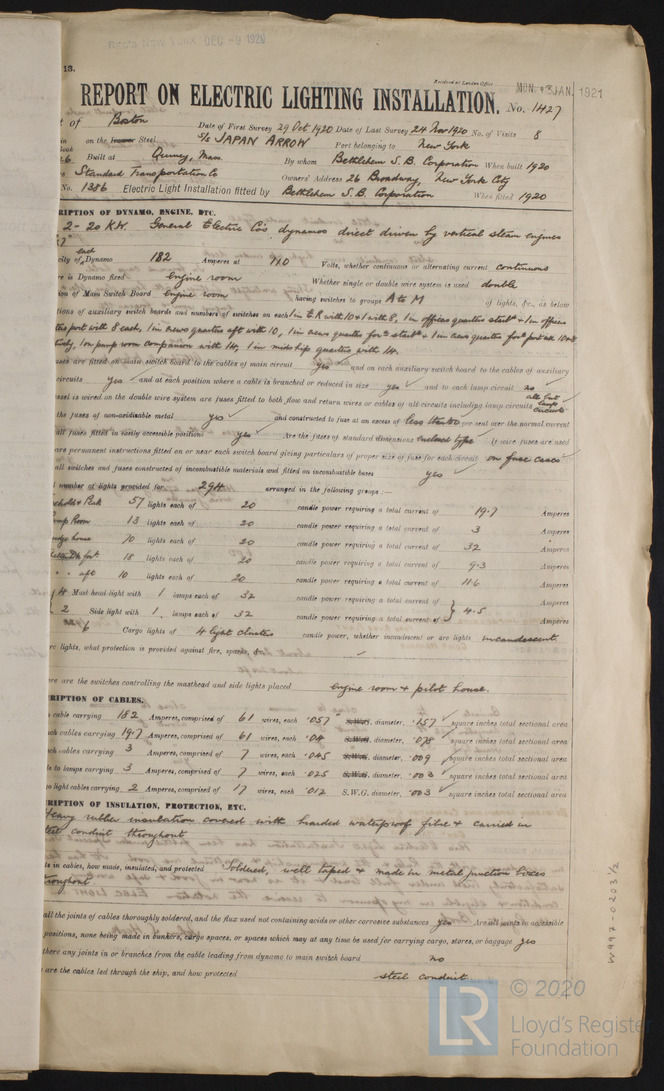 Rec'd NEW YORK DEC -9 1920
13.
Received at London Office MON. 3 JAN. 1921
REPORT ON ELECTRIC LIGHTING INSTALLATION. No. 1427
t of Boston Date of First Survey 29 Oct 1920 Date of Last Survey 24 Nov 1920 No. of Visits 8
on the Steel S/S JAPAN ARROW Port belonging to New York
Built at Quincy, Mass. By whom Bethlehem S. B. Corporation When built 1920
Standard Transportation Co Owners' Address 26 Broadway, New York City
No. 1386 Electric Light Installation fitted by Bethlehem S. B. Corporation When fitted 1920
RIPTION OF DYNAMO, ENGINE, ETC.
2 - 20 K.W. General Electric Co's dynamos direct driven by vertical steam engines
city of each Dynamo 182 Amperes at 110 Volts, whether continuous or alternating current continuous
re is Dynamo fixed engine room Whether single or double wire system is used double
ion of Main Switch Board engine room having switches to groups A to M of lights, &c., as below
tions of auxiliary switch boards and numbers of switches on each 1 in E.R with 10 + 1 with 8, 1 in officers quarters starbd + 1 in officers
port with 8 each, 1 in crews quarters aft with 10, 1 in crews quarters for'd starbd + 1 in crews quarter for'd port
1 on pump room companion with 14, 1 in midship quarters with 14.
uses are fitted on main switch board to the cables of main circuit yes and on each auxiliary switch board to the cables of auxiliary
circuits yes and at each position where a cable is branched or reduced in size yes and to each lamp circuit no
essel is wired on the double wire system are fuses fitted to both flow and return wires or cables of all circuits including lamp circuits all but lamp circuits
the fuses of non-oxidizable metal yes and constructed to fuse at an excess of less than 50 per cent over the normal current
all fuses fitted in easily accessible positions yes Are the fuses of standard dimensions enclosed type If wire fuses are used
are permanent instructions fitted on or near each switch board giving particulars of proper size of fuse for each circuit on fuse cases
all switches and fuses constructed of incombustible materials and fitted on incombustible bases yes
l number of lights provided for 294 arranged in the following groups :—
57 lights each of 20 candle power requiring a total current of 19.7 Amperes
Room 13 lights each of 20 candle power requiring a total current of 3 Amperes
house 70 lights each of 20 candle power requiring a total current of 32 Amperes
18 lights each of 20 candle power requiring a total current of 9.3 Amperes
" " aft 10 lights each of 20 candle power requiring a total current of 11.6 Amperes
4 Mast head light with 1 lamps each of 32 candle power requiring a total current of
2 Side light with 1 lamps each of 32 candle power requiring a total current of } 4.5 Amperes
6 Cargo lights of 4 light clusters candle power, whether incandescent or arc lights incandescent
rc lights, what protection is provided against fire, sparks, &c.
re are the switches controlling the masthead and side lights placed engine room + pilot house.
RIPTION OF CABLES.
cable carrying 182 Amperes, comprised of 61 wires, each .057" S.W.G. diameter, .157 square inches total sectional area
ch cables carrying 19.7 Amperes, comprised of 61 wires, each .04 S.W.G. diameter, .078 square inches total sectional area
ch cables carrying 3 Amperes, comprised of 7 wires, each .045 S.W.G. diameter, .009 square inches total sectional area
le to lamps carrying 3 Amperes, comprised of 7 wires, each .025 S.W.G. diameter, .003 square inches total sectional area
o light cables carrying 2 Amperes, comprised of 17 wires, each .012 S.W.G. diameter, .003 square inches total sectional area
RIPTION OF INSULATION, PROTECTION, ETC.
Heavy rubber insulation covered with braided waterproof fibre + carried in
steel conduit throughout
ts in cables, how made, insulated, and protected Soldered, well taped + made in metal junction boxes
throughout
all the joints of cables thoroughly soldered, and the flux used not containing acids or other corrosive substances yes Are all joints in accessible
positions, none being made in bunkers, cargo spaces, or spaces which may at any time be used for carrying cargo, stores, or baggage yes
there any joints in or branches from the cable leading from dynamo to main switch board no
are the cables led through the ship, and how protected steel conduit
W997-0203 1/2
LR
© 2020
Lloyd's Register
Foundation